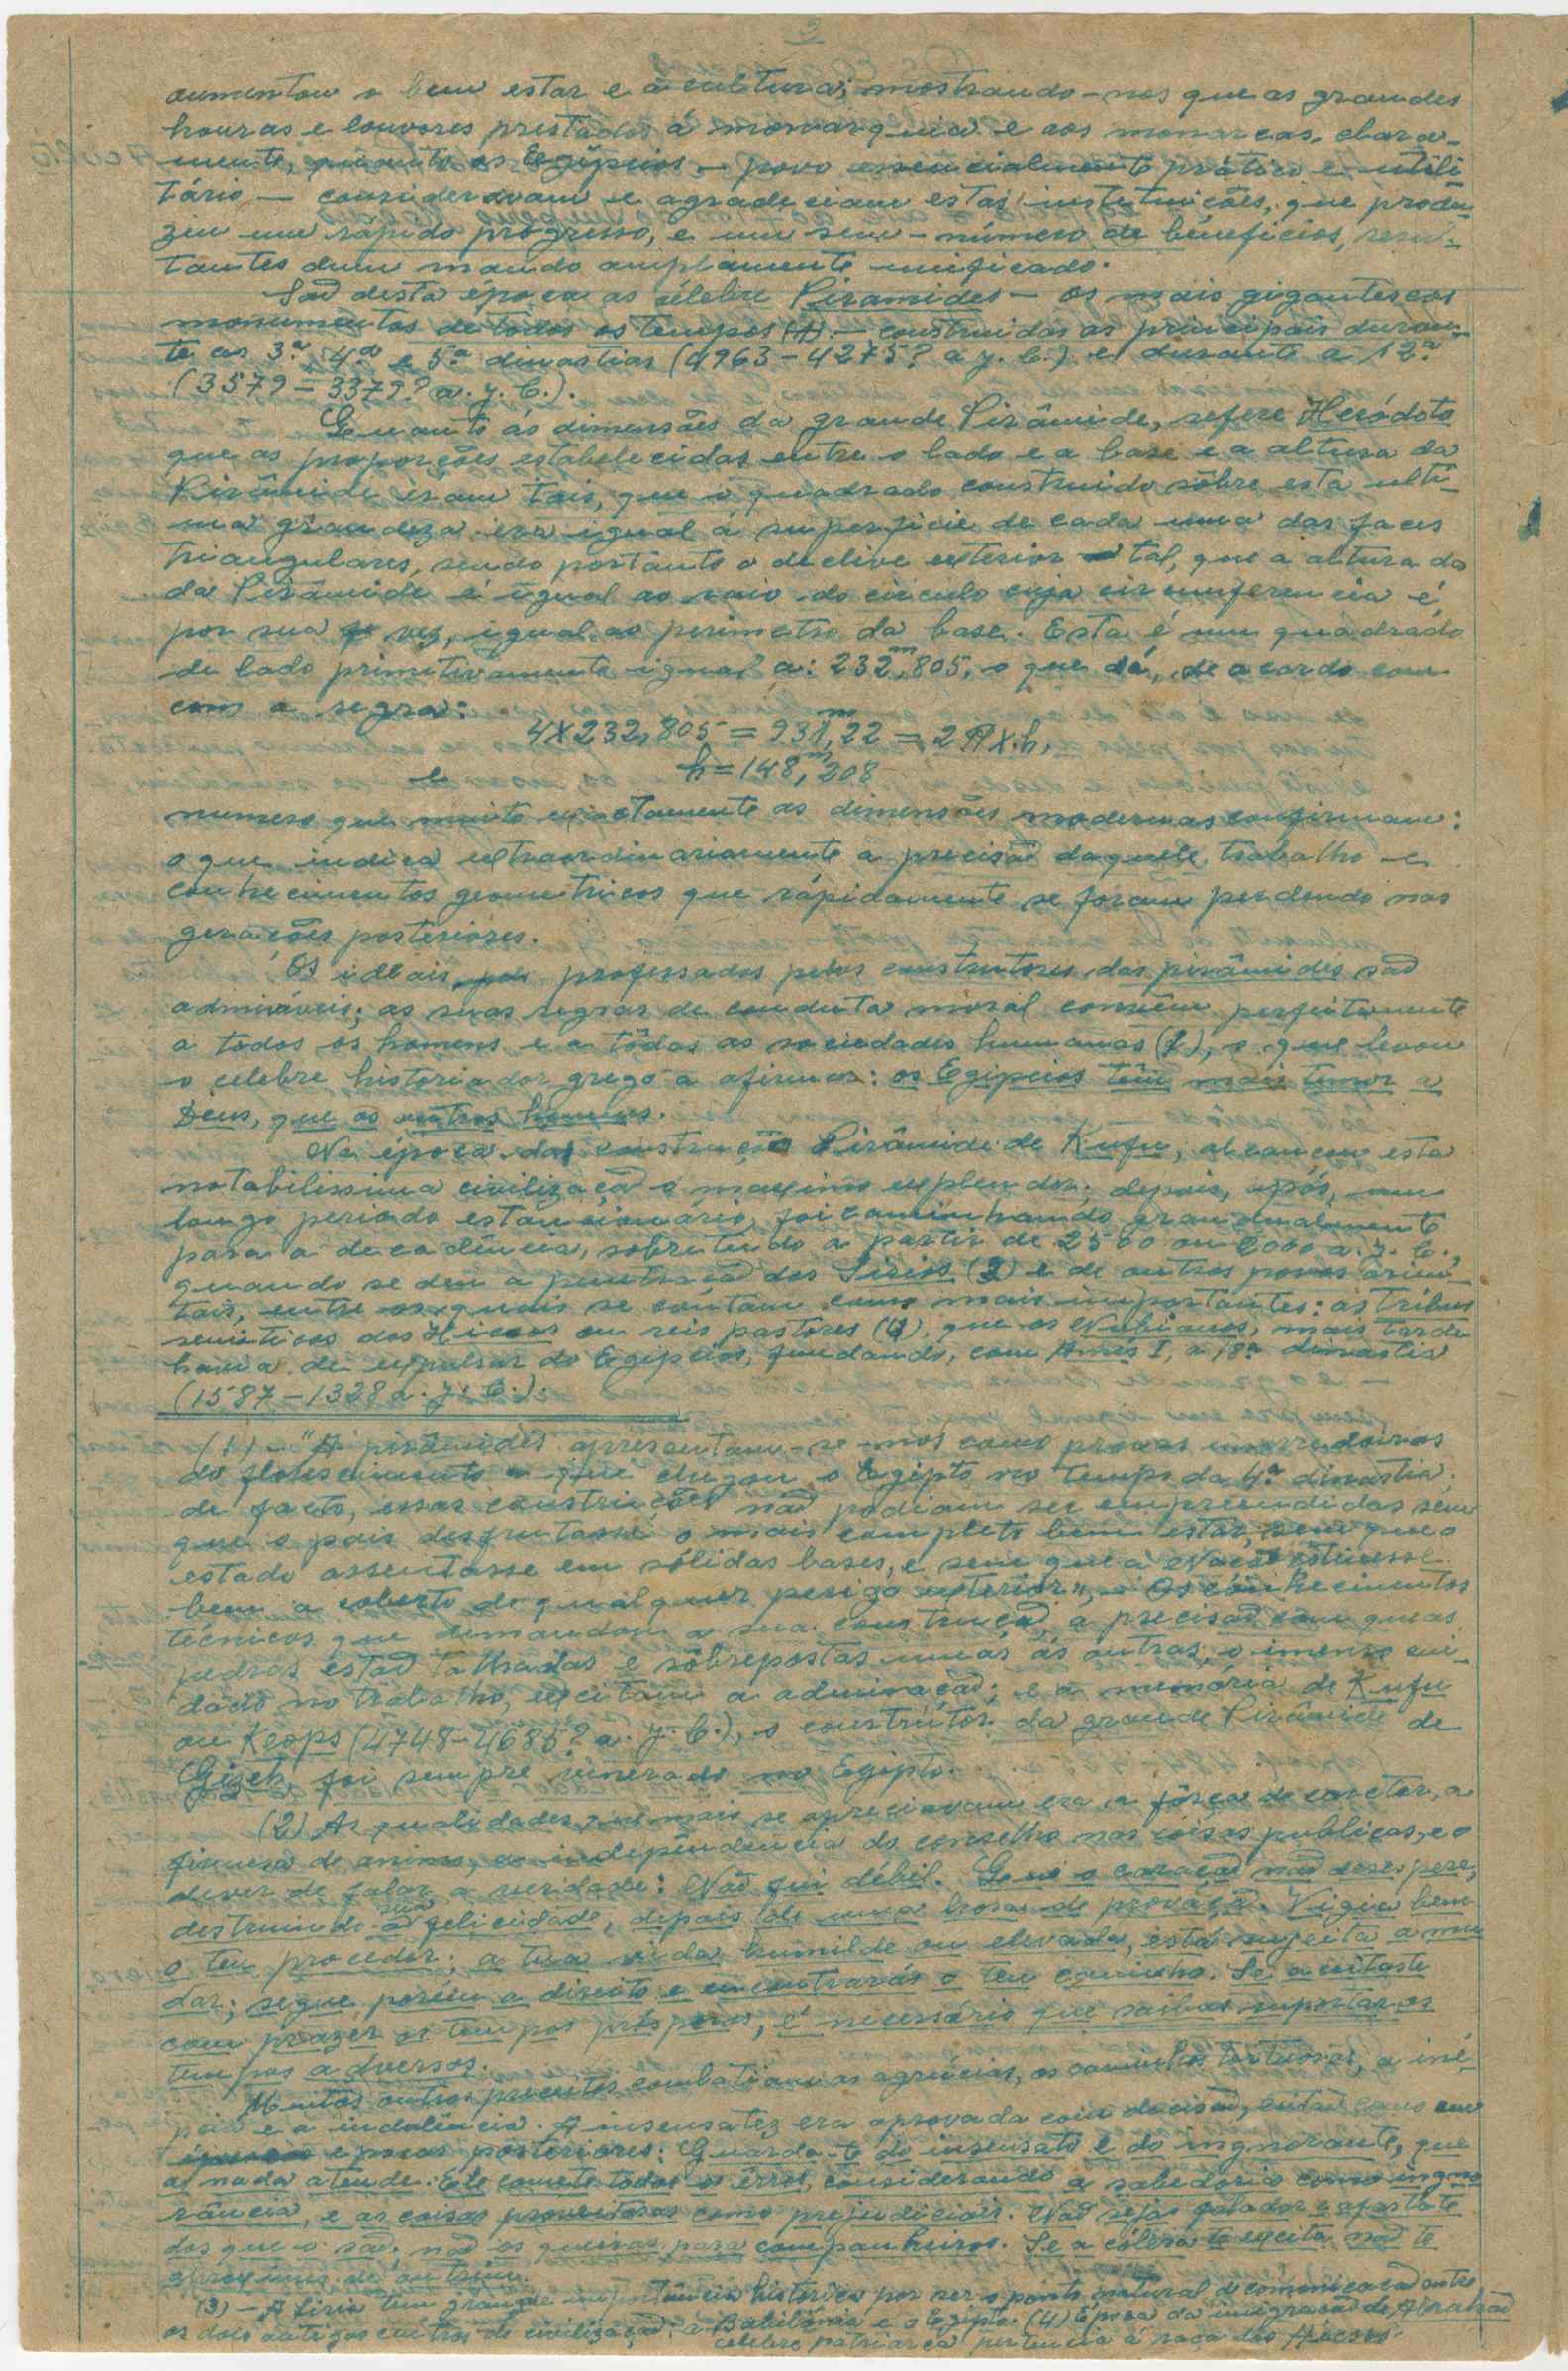 3
aumentou o bem estar e a cultura; mostrando-nos que as grandes
honras e louvores prestados á monarquia e aos monarcas, clara-
mente, quanto os Egípcios — povo essencialmente prático e utili-
tário — consideravam e agradeciam estas instituições, que produ-
ziu um rápido progresso, e um sem-número de benefícios, resul-
tantes dum mando amplamente unificado.
São desta época as célebre Piramides — os mais gigantescos
monumentos de todos os tempos (1) — construidas as principais duran-
te as 3.ª, 4.ª e 5.ª dinastias (4963-4275? a. J. C.) e durante a 12.ª
(3579=3379? a. J. C.).
Quanto ás dimensões da grande Pirâmide, refere Heródoto
que as proporções estabelecidas entre o lado e a base e a altura da
Pirâmide eram tais, que o quadrado construido sôbre esta ulti-
ma grandeza era igual á superficie de cada uma das faces
triangulares, sendo portanto o declive exterior tal, que a altura da
da Pirâmide é igual ao raio do circulo cuja circunferencia é,
por sua vez, igual ao perimetro da base. Esta é um quadrado
de lado primitivamente igual a: 232,m805, o que dá, de acordo com
com a regra:
4x232,805 = 931,m22 = 2πx.h,
h=148,m208
numero que muito exactamente as dimensões modernas confirmam:
o que indica extraordinariamente a precisão daquele trabalho e
conhecimentos geometricos que rápidamente se foram perdendo nas
gerações posteriores.
Os ideais professados pelos construtores das pirâmides são
admiráveis; as suas regras de conduta moral convêm perfeitamente
a todos os homens e a tôdas as sociedades humanas (2), o que levou
o celebre historiador grego a afirmar: os Egipcios têm mais temor a
Deus, que os outros homens.
Na época da construção Pirâmide de Kufu, alcançou esta
notabilissima civilização o maximo explendor; depois, após, um
longo periodo estancionário, foi caminhando grandualmente
para a decadência, sobretudo a partir de 2500 ou 2000 a. J. C.,
quando se deu a penetração dos Sirios (3) e de outros povos orien-
tais, entre os quais se contam como mais importantes: as tribus
semiticas dos Hicsos ou reis pastores (4), que os Nubianos, mais tarde
havia de expulsar do Egipcio, fundando, com Amés I, a 18.ª dinastia
(1587-1328 a. J. C.).
(1) — "A pirâmides apresentam-se-nos como provas
do florescimento a que chegou o Egipto no tempo da 4.ª dinastia;
de facto, essas construções não podiam ser empreendidas sem
que o pais desfrutasse o mais completo bem estar, sem que o
estado assentasse em sólidas bases, e sem que a Nação estivesse
bem a coberto de qualquer perigo exterior". — Os conhecimentos
técnicos que demandou a sua construção, a precisão com que as
pedras estão talhadas e sôbrepostas umas ás outras, o imenso cui-
dado no trabalho, excitam a admiração; e a memória de Kufu
ou Keops (4748-4685? a. J. C.), o construtor da grande Pirâmide de
Gizeh, foi sempre venerado no Egipto.
(2) As qualidades que mais se apreciavam era a fôrça de caracter, a
firmesa de animo, a indepêndencia do conselho nas coisas publicas, e o
dever de falar a verdade: Não fui débil. Que o coração não desespere,
destruindo a sua felicidade, depois de uma hora de provação. Vigia bem
o teu proceder; a tua vida humilde ou elevada, está sujeita a mu
dar; segue porém a direito e encontrarás o teu caminho. Se aceitaste
com prazer os tempos prósperos, é necessário que saibas suportar os
tempos adversos.
Muitos outros preceitos combatiam as agrúcias, os caminhos tortuosos, a iné-
pcia e a indolência. A insensatez era aprovada com decisão, então como em
epocas posteriores: Guarda-te do insensato e do ingnorante, que
a nada atende: Ele comete todos os êrros, considerando a sabedoria como ingno
rância, e as coisas proveitosas como prejudiciais. Não sejas falador e afasta-te
dos que o são; não os queiras para companheiros. Se a cólera te excita não te
aproximes de outrem.
(3) — A Siria tem grande importância histórica por ser o ponto natural de comonicação entre
os dois antigos centros de civilização: a Babilónia e o Egipto. (4) Epoca da imigração de Abraão
celebre patriarca pertencia á raça dos Hicsos.